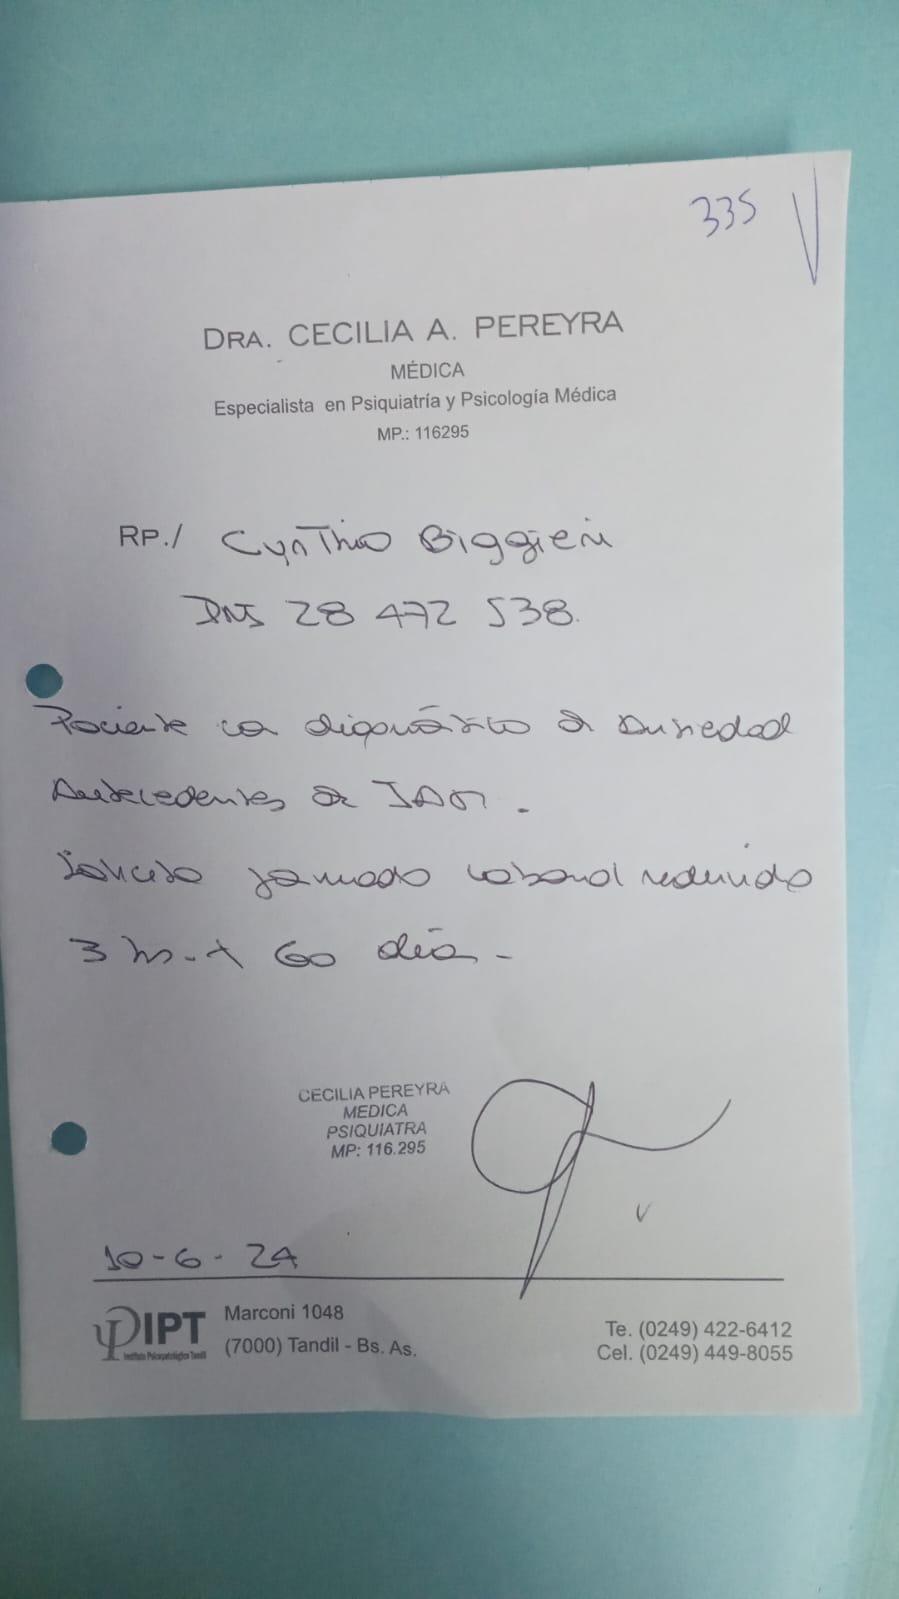 335
DRA. CECILIA A. PEREYRA
MÉDICA
Especialista en Psiquiatría y Psicología Médica
MP.: 116295
RP./ Cynthia Biggieri
DNI 28 472 538.
Paciente con diagnóstico de ansiedad
Antecedentes de IAM.
Solicito jornada laboral reducida
3 hs. x 60 días.-
CECILIA PEREYRA
MEDICA
PSIQUIATRA
MP: 116.295
10-6-24
IPT
Instituto Psicopatológico Tandil
Marconi 1048
(7000) Tandil - Bs. As.
Te. (0249) 422-6412
Cel. (0249) 449-8055